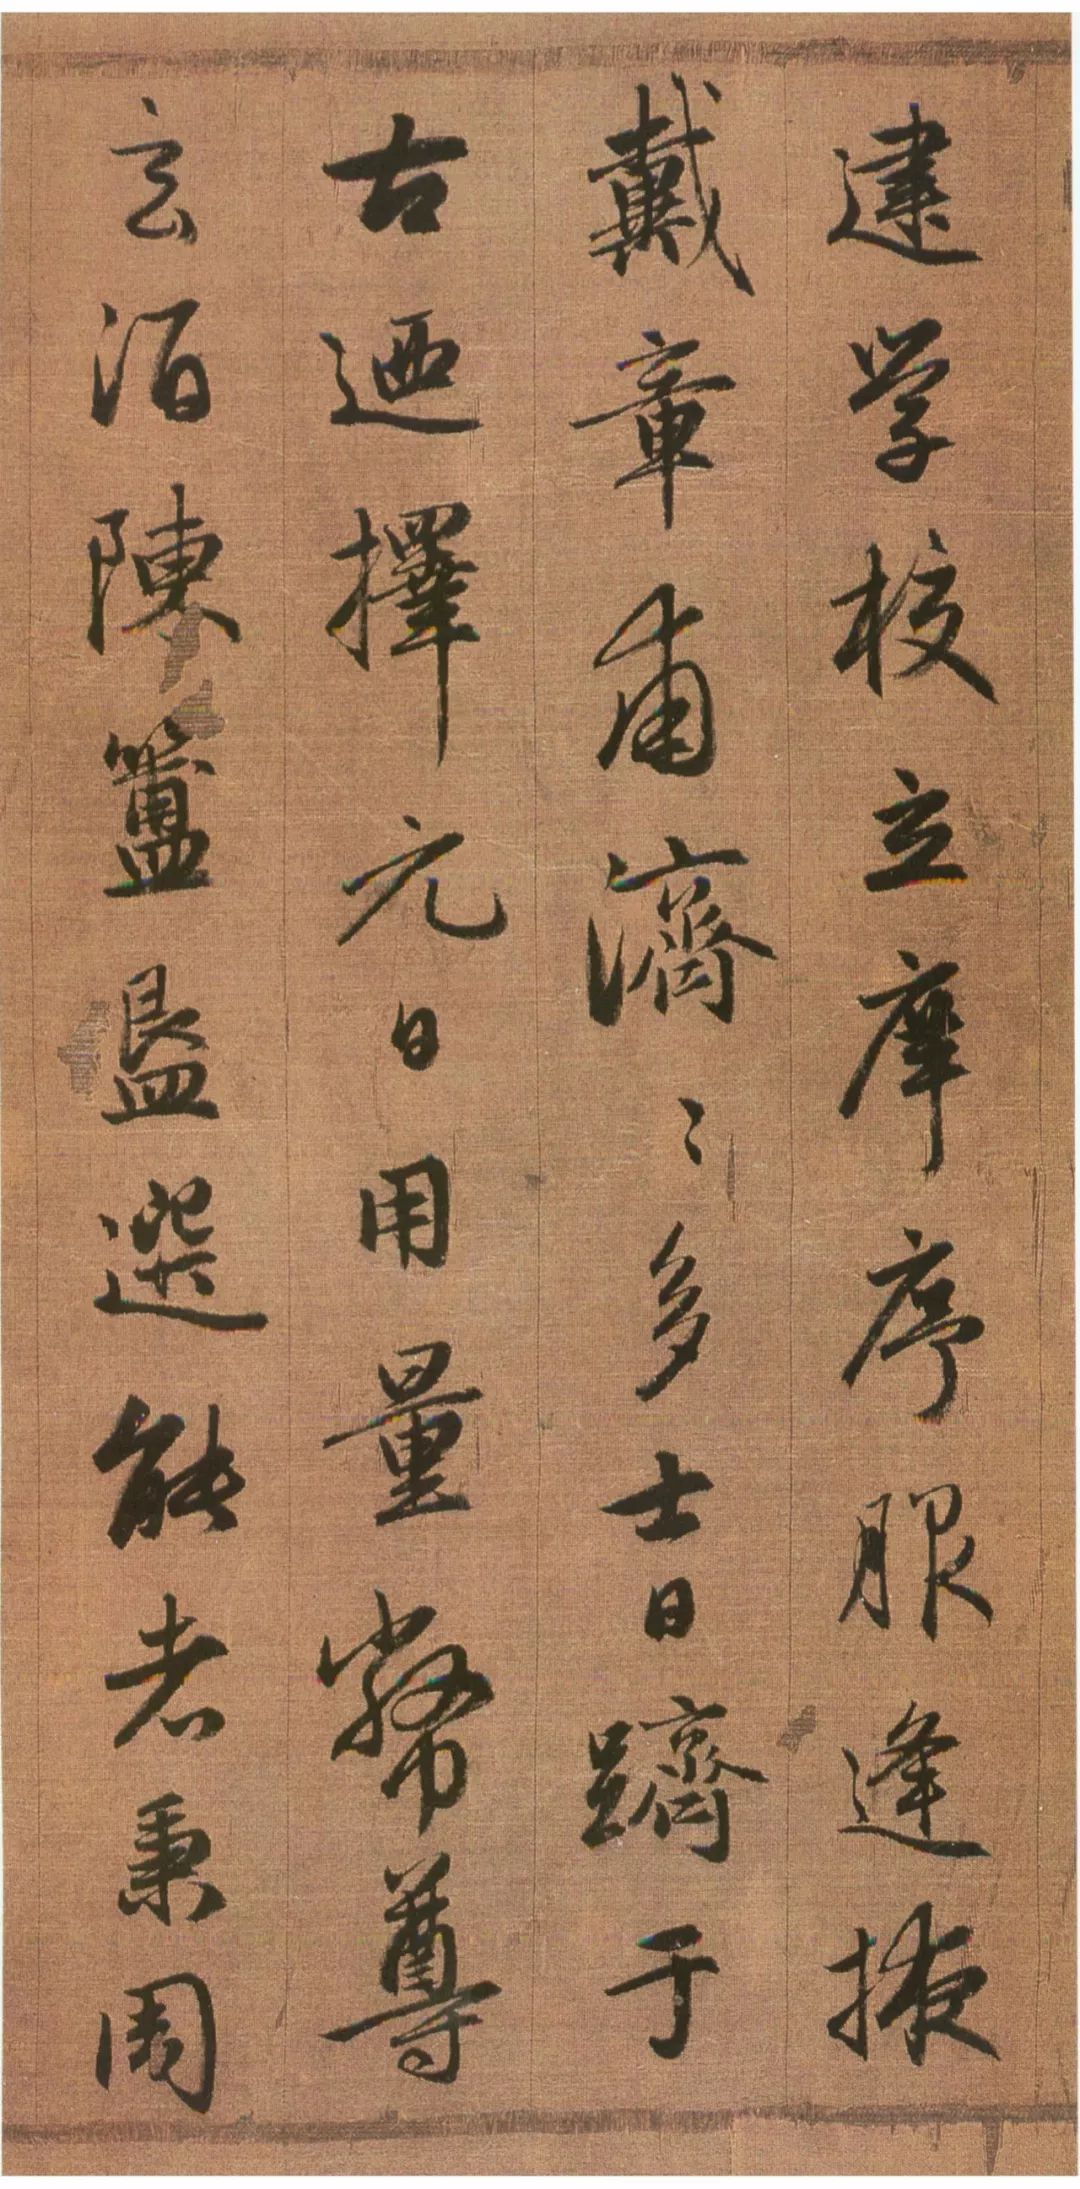 建学校立庠序服逢掖
戴章甫濟〻多士日躋于
古迺擇元日用量幣尊
玄酒陳簠簋選能者秉周